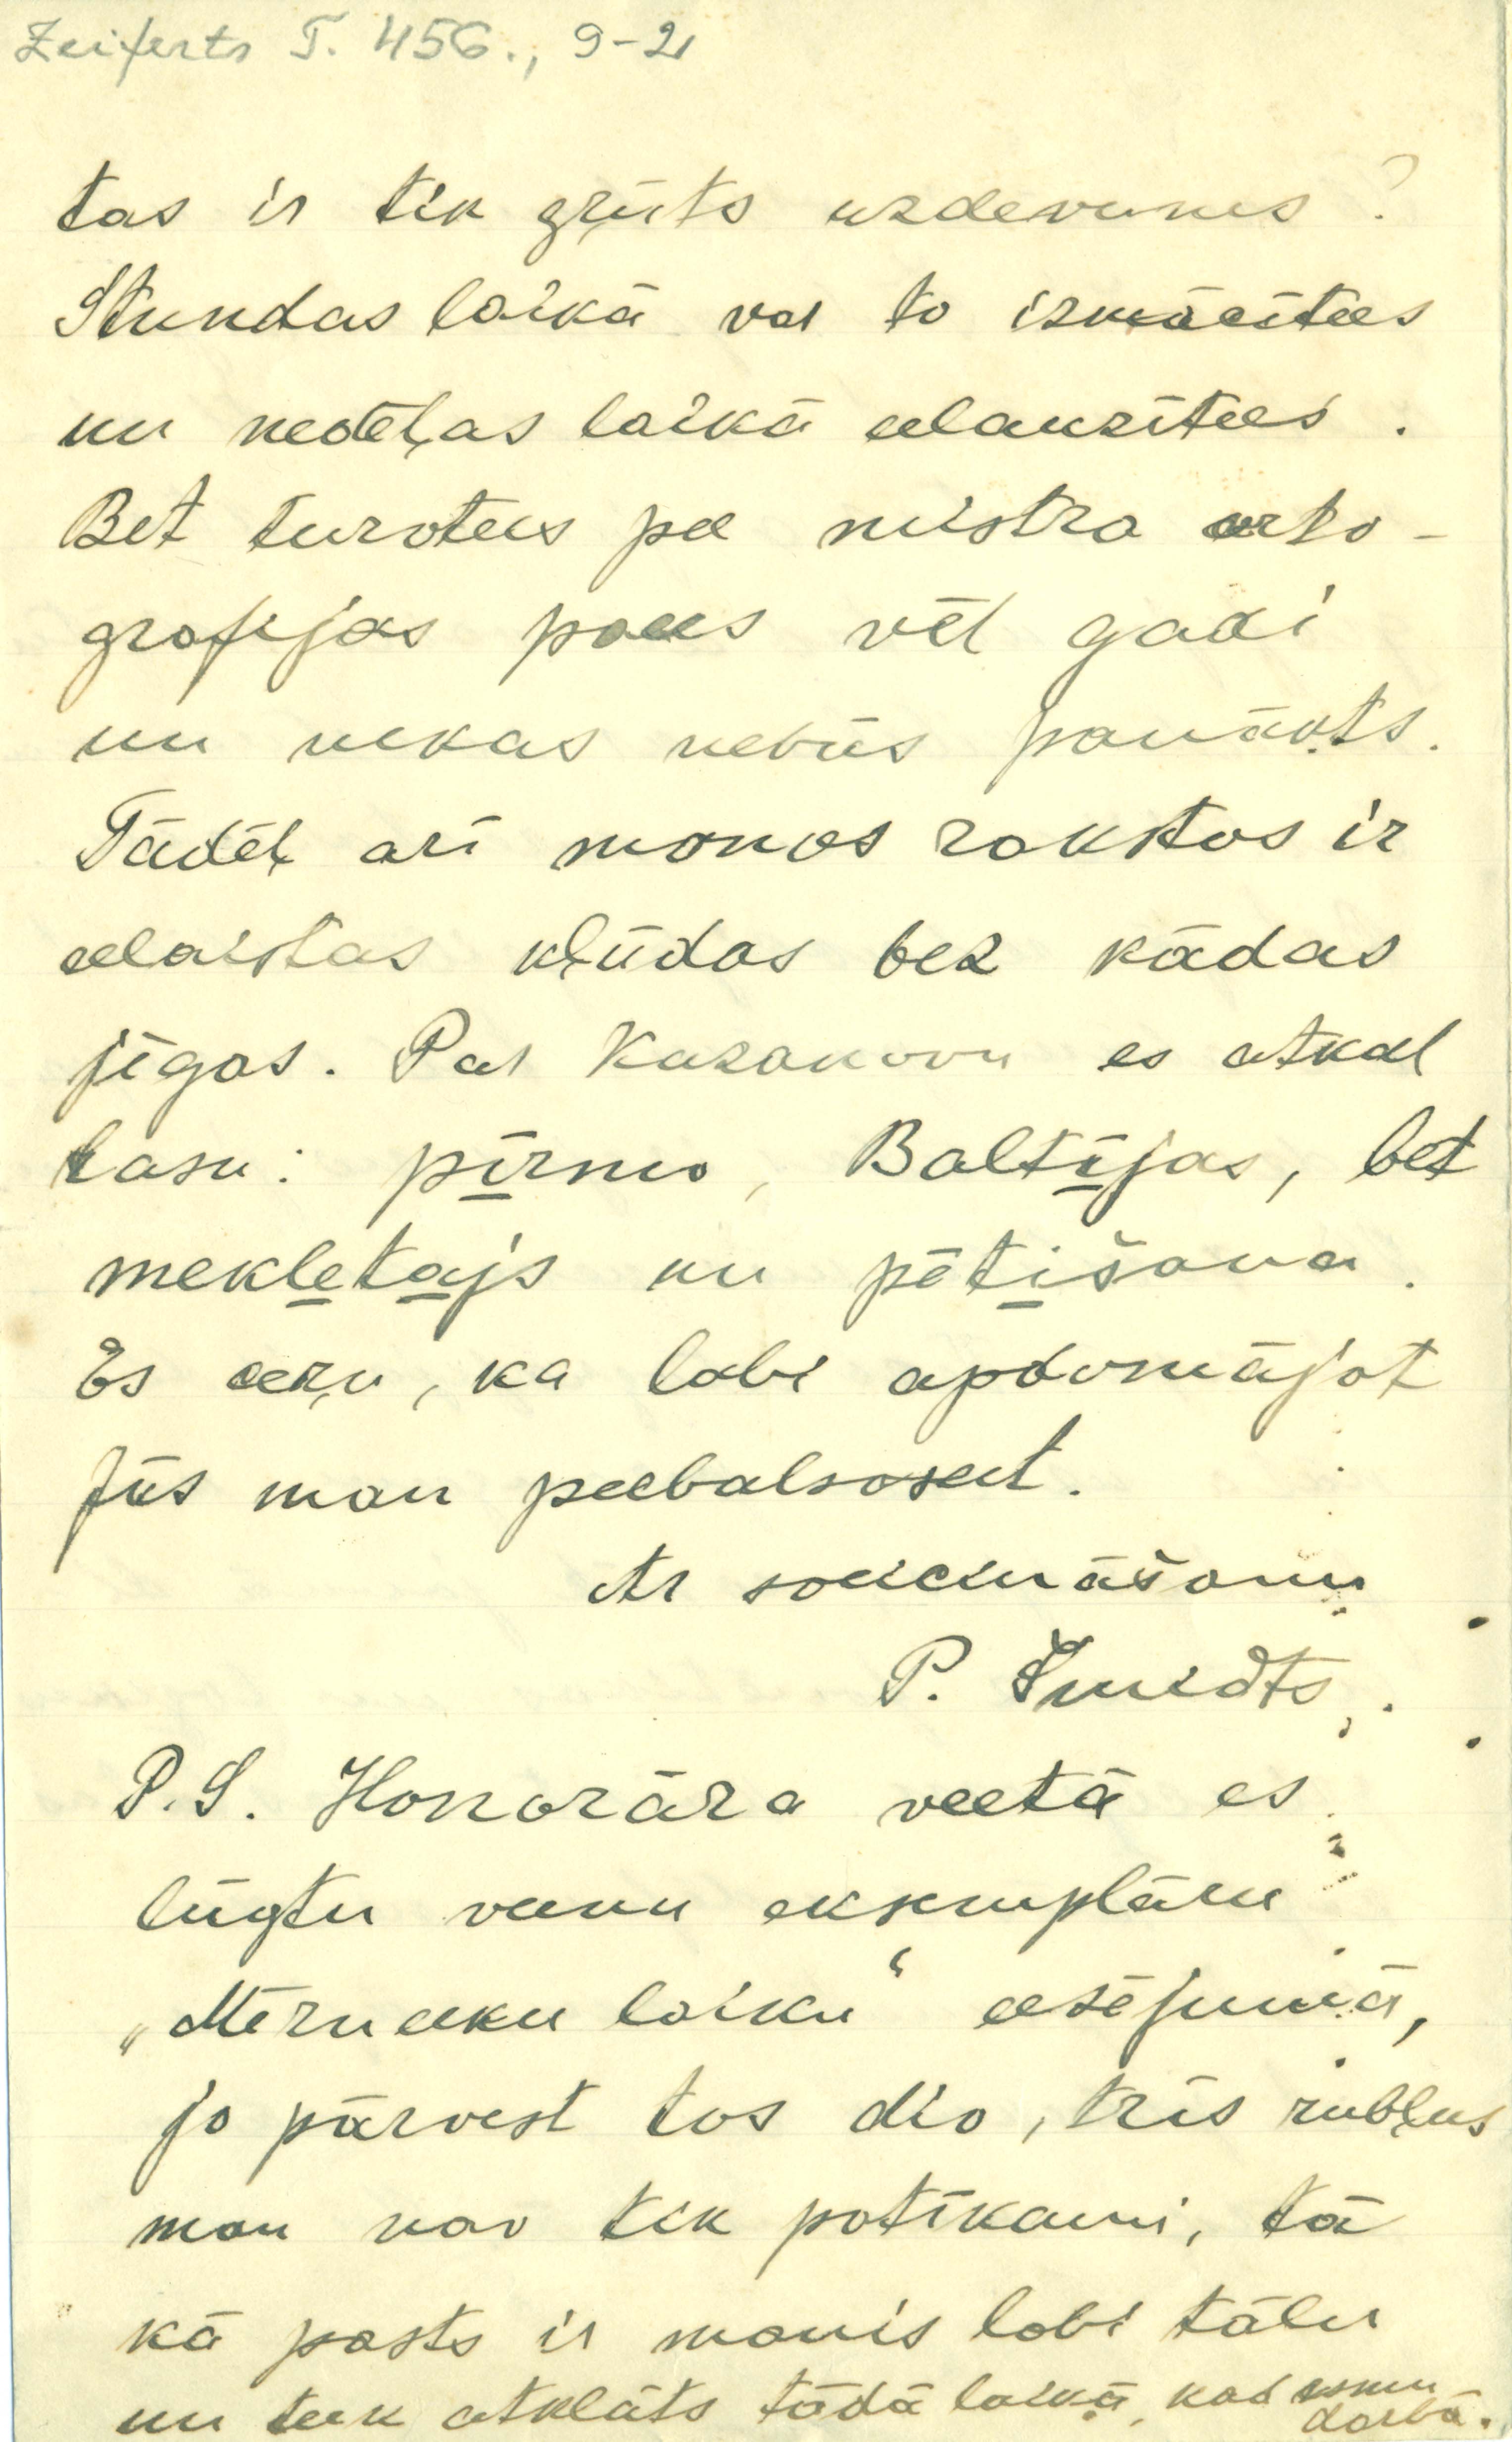 Zeiferts T. 456., 9-21
tas ir tik grūts uzdevums?
Stundas laikā var to izmācītees
un nedēļas laikā eelauzītees.
Bet turotees pee mistra orto-
grafijas paees vēl gadi
un nekas nebūs panākts.
Tādēļ arī manos rakstos ir
eelaistas kļūdas bez kādas
jēgas. Par Kazakovu es atkal
lasu: pīrmo, Baltījas, bet
mekletajs un pētišana.
Es ceru, ka labi apdomājot
Jūs man peebalsoseet.
Ar sveicināšanu
P. Šmidts.
P.S. Honorāra veetā es
lūgtu veenu eksemplāru
„Mērneeku laiku“ eesējumā,
jo pārvest tos div, trīs rubļus
man nav tik patīkami, tā
kā pasts ir manis labi tālu
un teek atklāts tādā laikā, kad esmu
darbā.